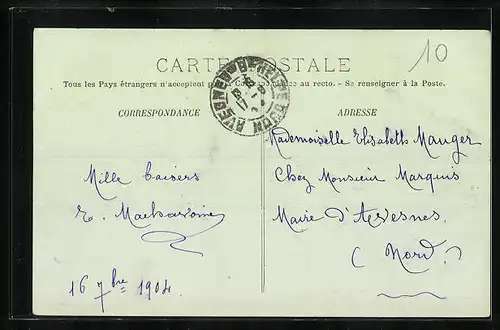 10
CARTE POSTALE
Tous les Pays étrangers n'acceptent pas la Correspondance au recto. — Se renseigner à la Poste.
CORRESPONDANCE
ADRESSE
Mille baisers
E.
16 7bre 1904
Mademoiselle Elisabeth Mauger
Chez Monsieur Marquis
Maire d'Avesnes
(Nord)